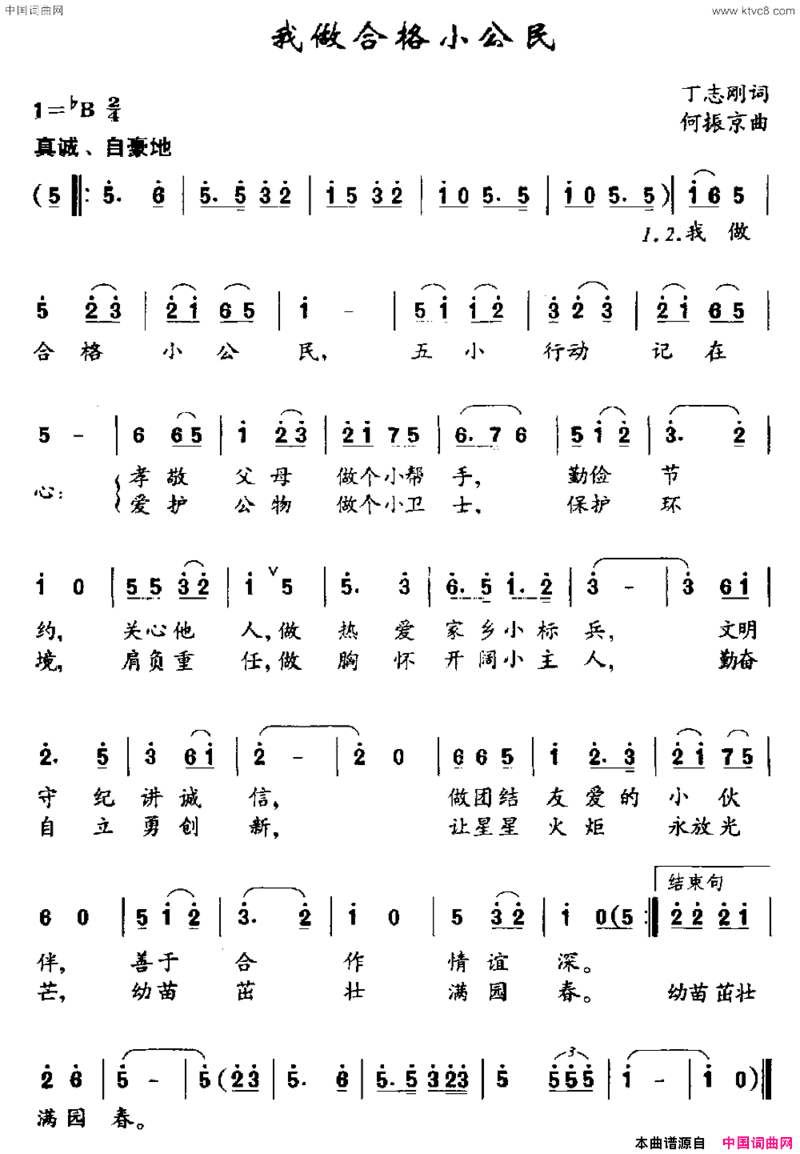 中国词曲网
www.ktvc8.com
我做合格小公民
1=♭B 2/4
丁志刚词
何振京曲
真诚、自豪地
(5 ‖: 5. 6 | 5. 5 3 2 | 1 5 3 2 | 1 0 5. 5 | 1 0 5. 5) | 1 6 5 |
1.2.我 做
5 2 3 | 2 1 6 5 | 1 - | 5 1 1 2 | 3 2 3 | 2 1 6 5 |
合 格 小 公 民, 五 小 行动 记 在
5 - | 6 6 5 | 1 2 3 | 2 1 7 5 | 6. 7 6 | 5 1 2 | 3. 2 |
心: 孝 敬 父 母 做个小帮 手, 勤俭 节
爱 护 公 物 做个小卫 士, 保护 环
1 0 | 5 5 3 2 | 1 ∨ 5 | 5. 3 | 6. 5 1. 2 | 3 - | 3 6 1 |
约, 关心他 人,做 热 爱 家乡小标 兵, 文明
境, 肩负重 任,做 胸 怀 开阔小主 人, 勤奋
2. 5 | 3 6 1 | 2 - | 2 0 | 6 6 5 | 1 2. 3 | 2 1 7 5 |
守 纪 讲 诚 信, 做团结 友 爱的 小 伙
自 立 勇 创 新, 让星星 火 炬 永放光
结束句
6 0 | 5 1 2 | 3. 2 | 1 0 | 5 3 2 | 1 0 (5 :‖ 2 2 2 1 |
伴, 善于 合 作 情 谊 深。
芒, 幼苗 茁 壮 满 园 春。 幼苗茁壮
2 6 | 5 - | 5 (2 3 | 5. 6 | 5. 5 3 2 3 | 5 5 | 5 5 5 5 5 | 1 - | 1 0) ‖
3
满 园 春。
本曲谱源自 中国词曲网